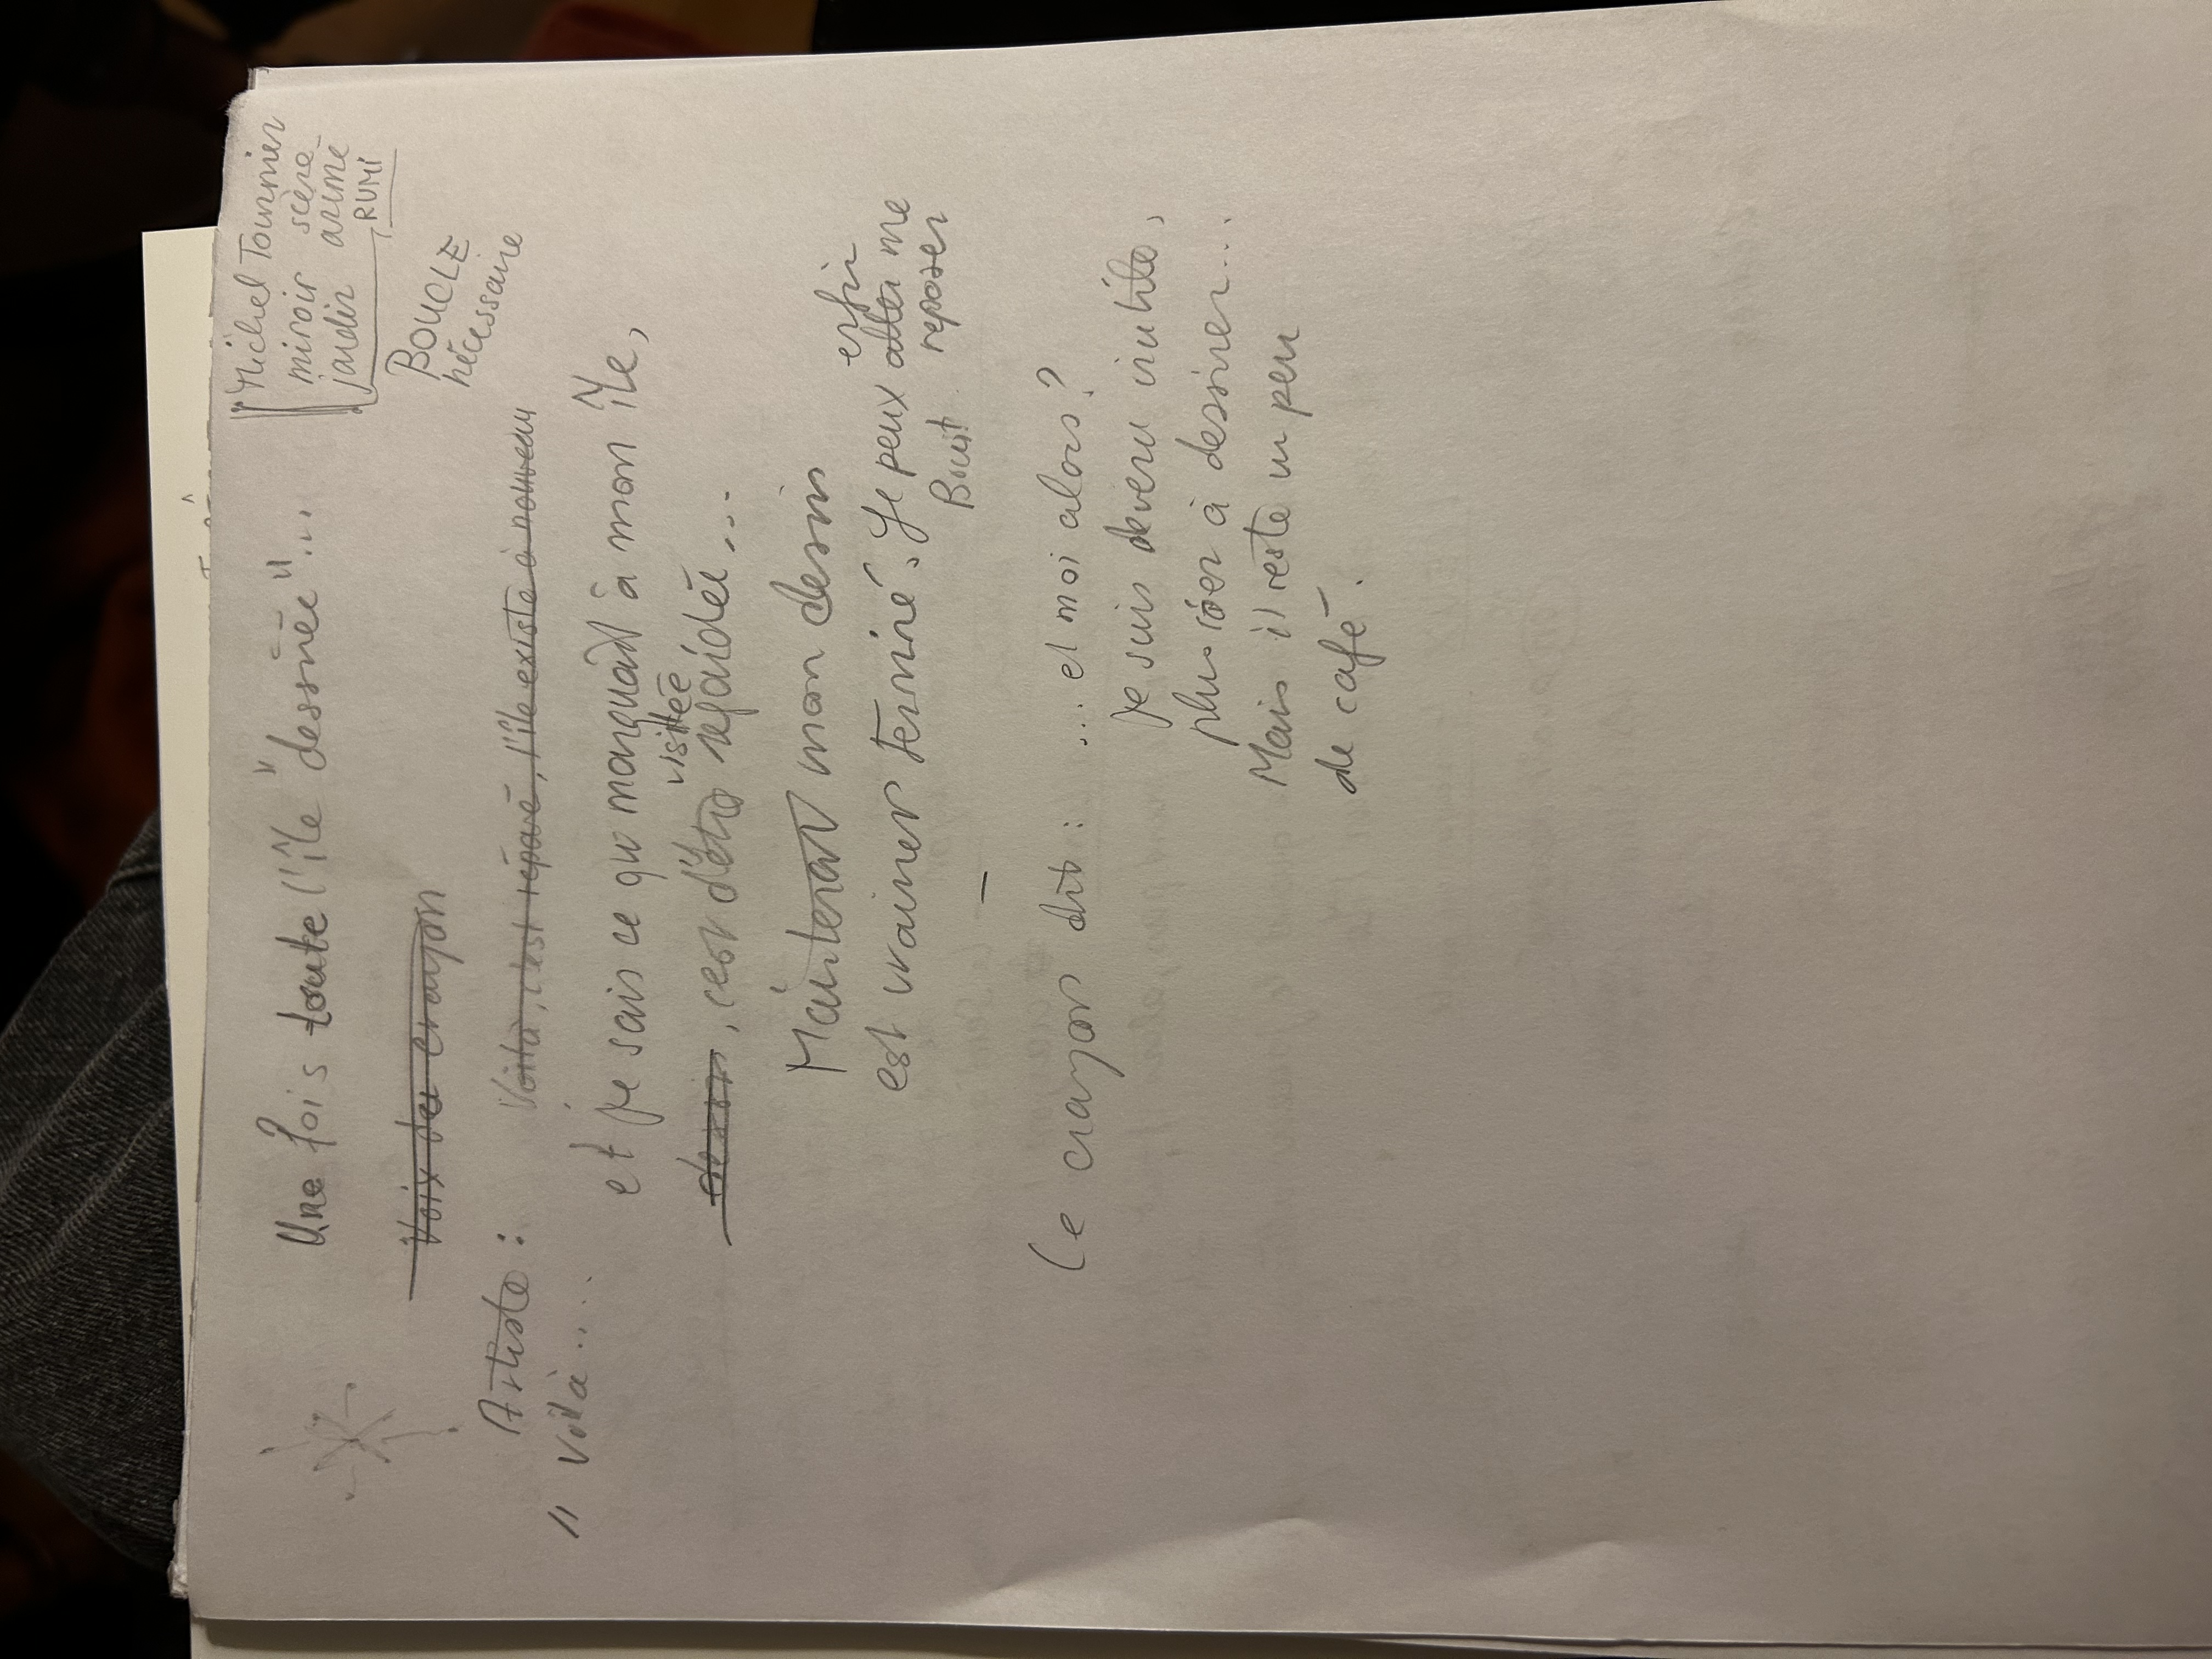 Une fois toute l'île "dessinée"...
Michel Tournier
miroir scène
jardin animé
RUMI
BOUCLE
nécessaire
Voix du crayon
Artiste :
Voilà, c'est réparé, l'île existe à nouveau
" Voilà ....
et je sais ce qui manquait à mon île,
dessin, c'est d'être visitée, regardée...
Maintenant mon dessin
est vraiment terminé. Je peux aller enfin me
reposer
Bruit
Le crayon dit : ... et moi alors ?
Je suis devenu inutile,
plus rien à dessiner...
Mais il reste un peu
de café.